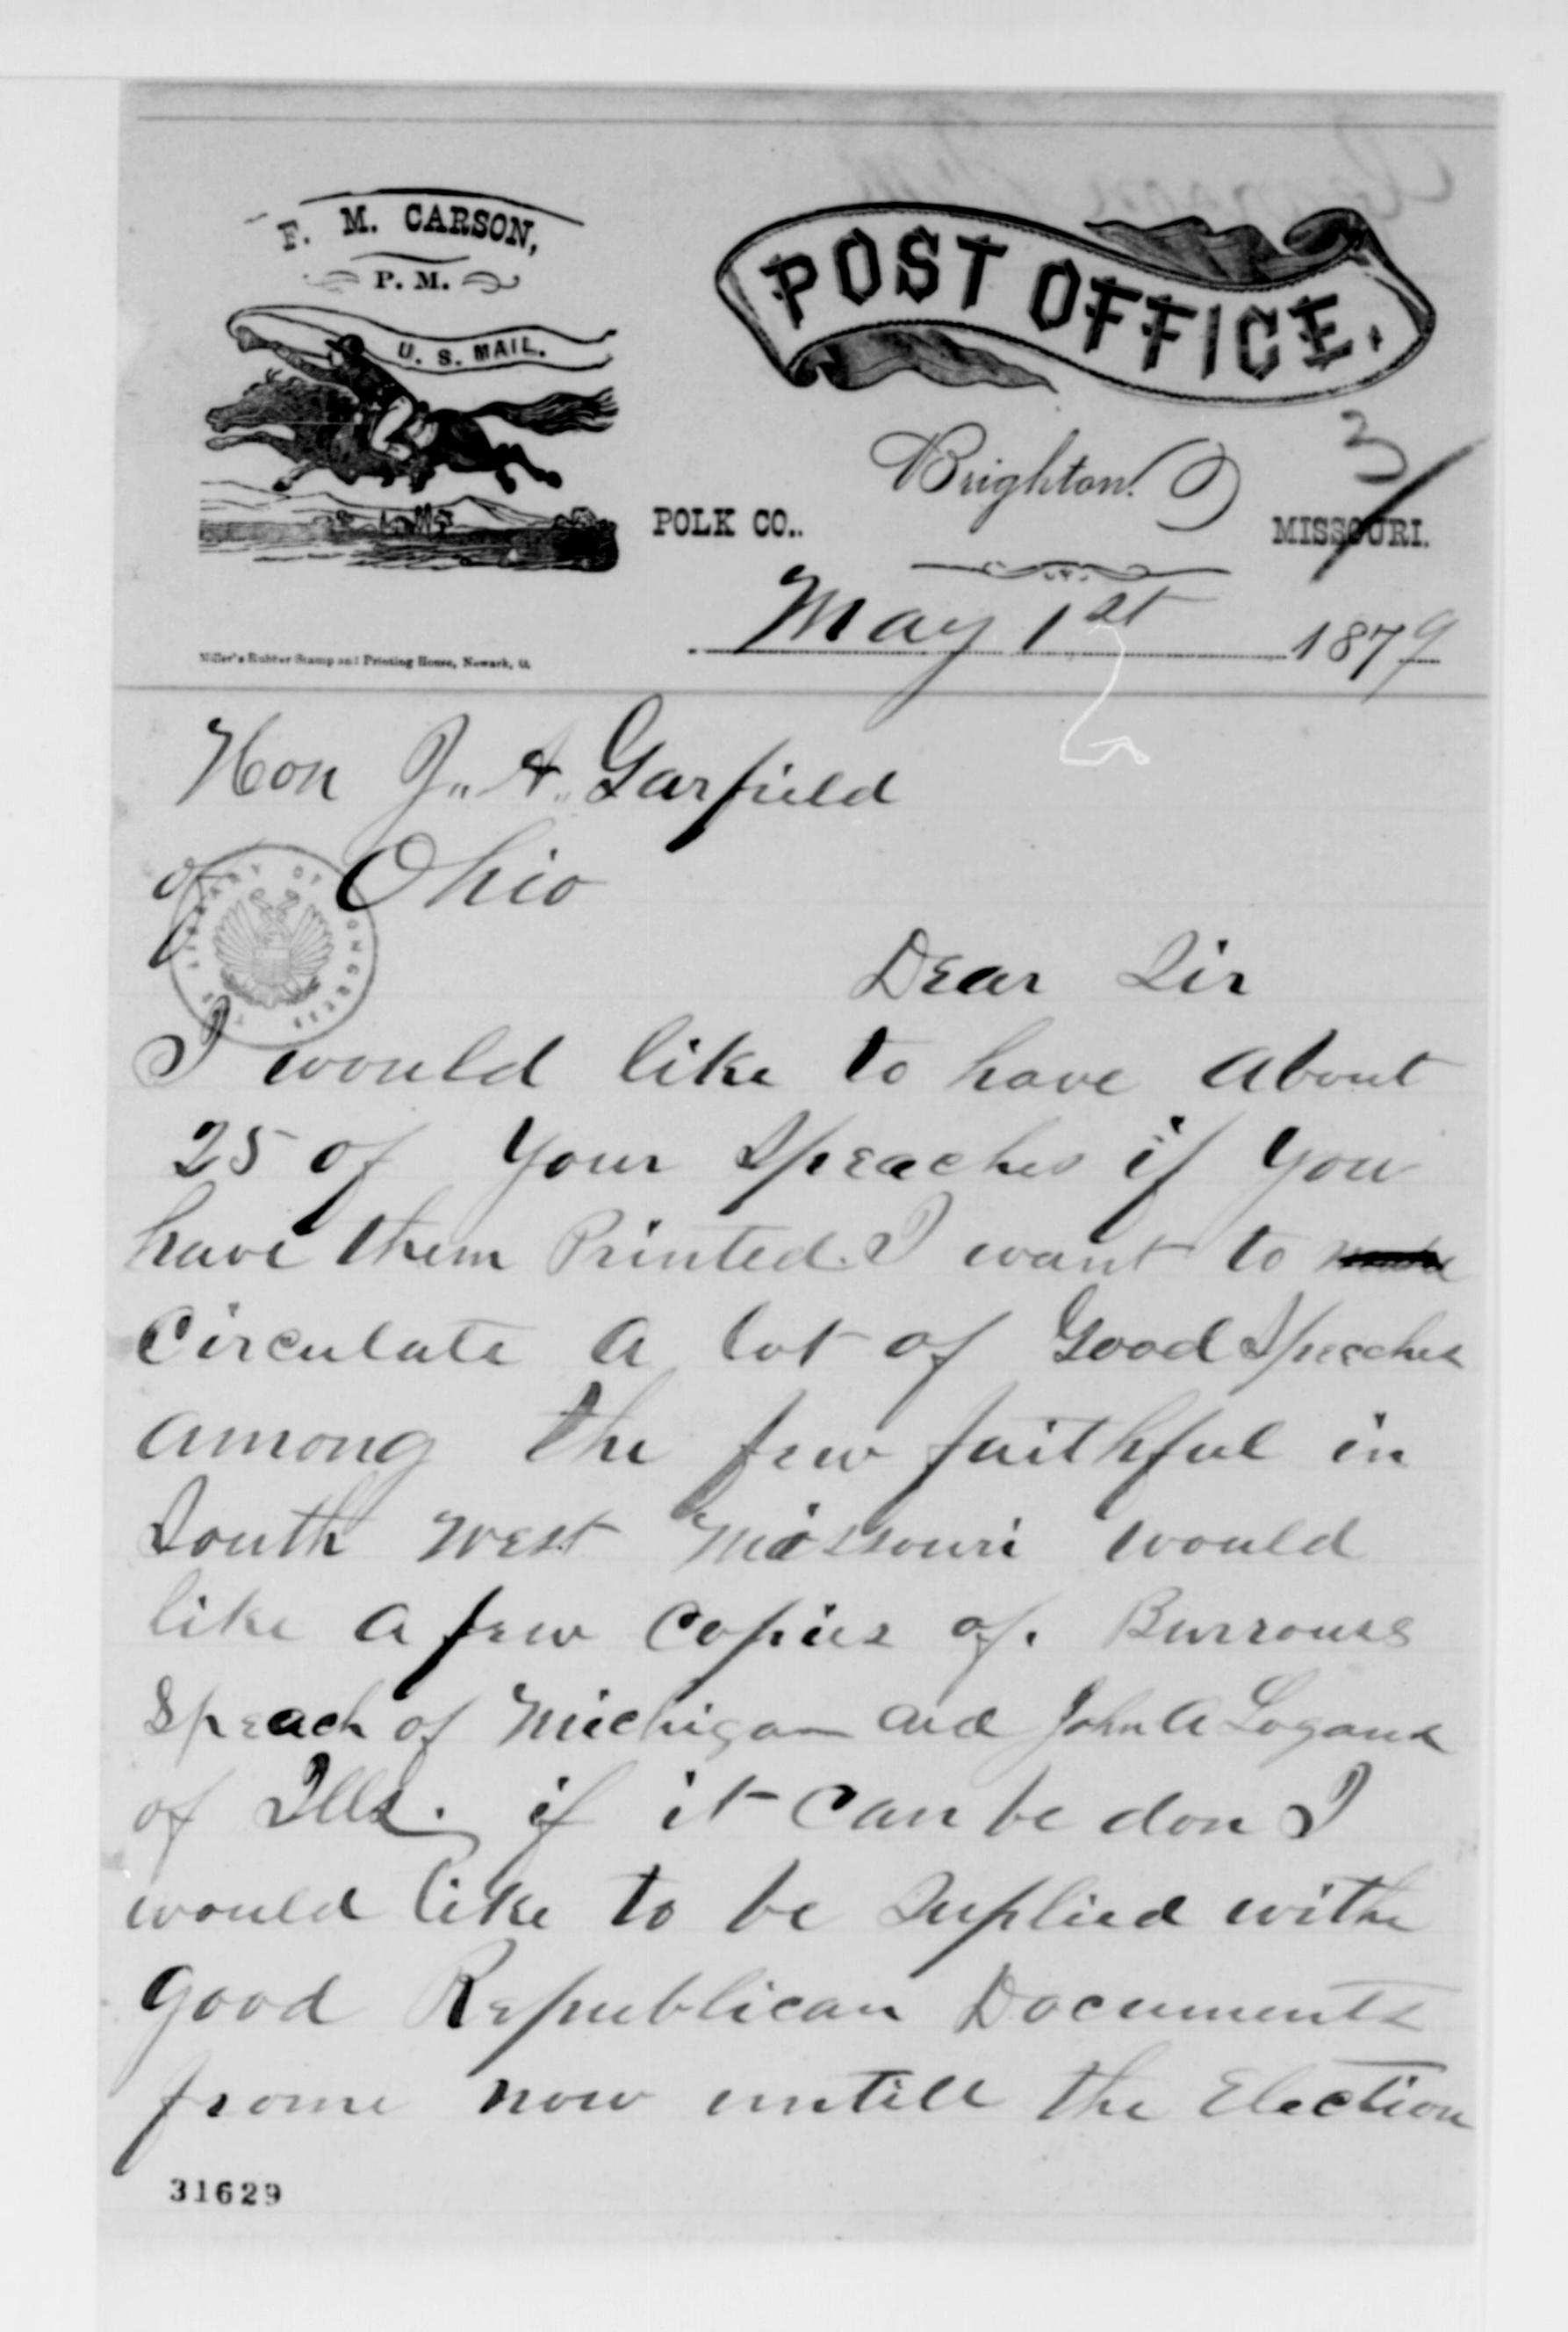 F. M. CARSON,
P. M.
U. S. MAIL.
POST OFFICE.
3
Brighton.
POLK CO.. MISSOURI.
May 1st 1879
Miller's Rubber Stamp and Printing House, Newark, O.
Hon J. A. Garfield
of Ohio
THE LIBRARY OF CONGRESS
Dear Sir
I would like to have about
25 of your Speaches if you
have them Printed. I want to
Circulate a lot of Good Speeches
among the few faithful in
South West Missouri would
like a few Copies of. Burrows
Speach of Michigan and John A Logans
of Ills. if it can be don I
would like to be Suplied withe
good Republican Documents
frome now untill the Election
31629